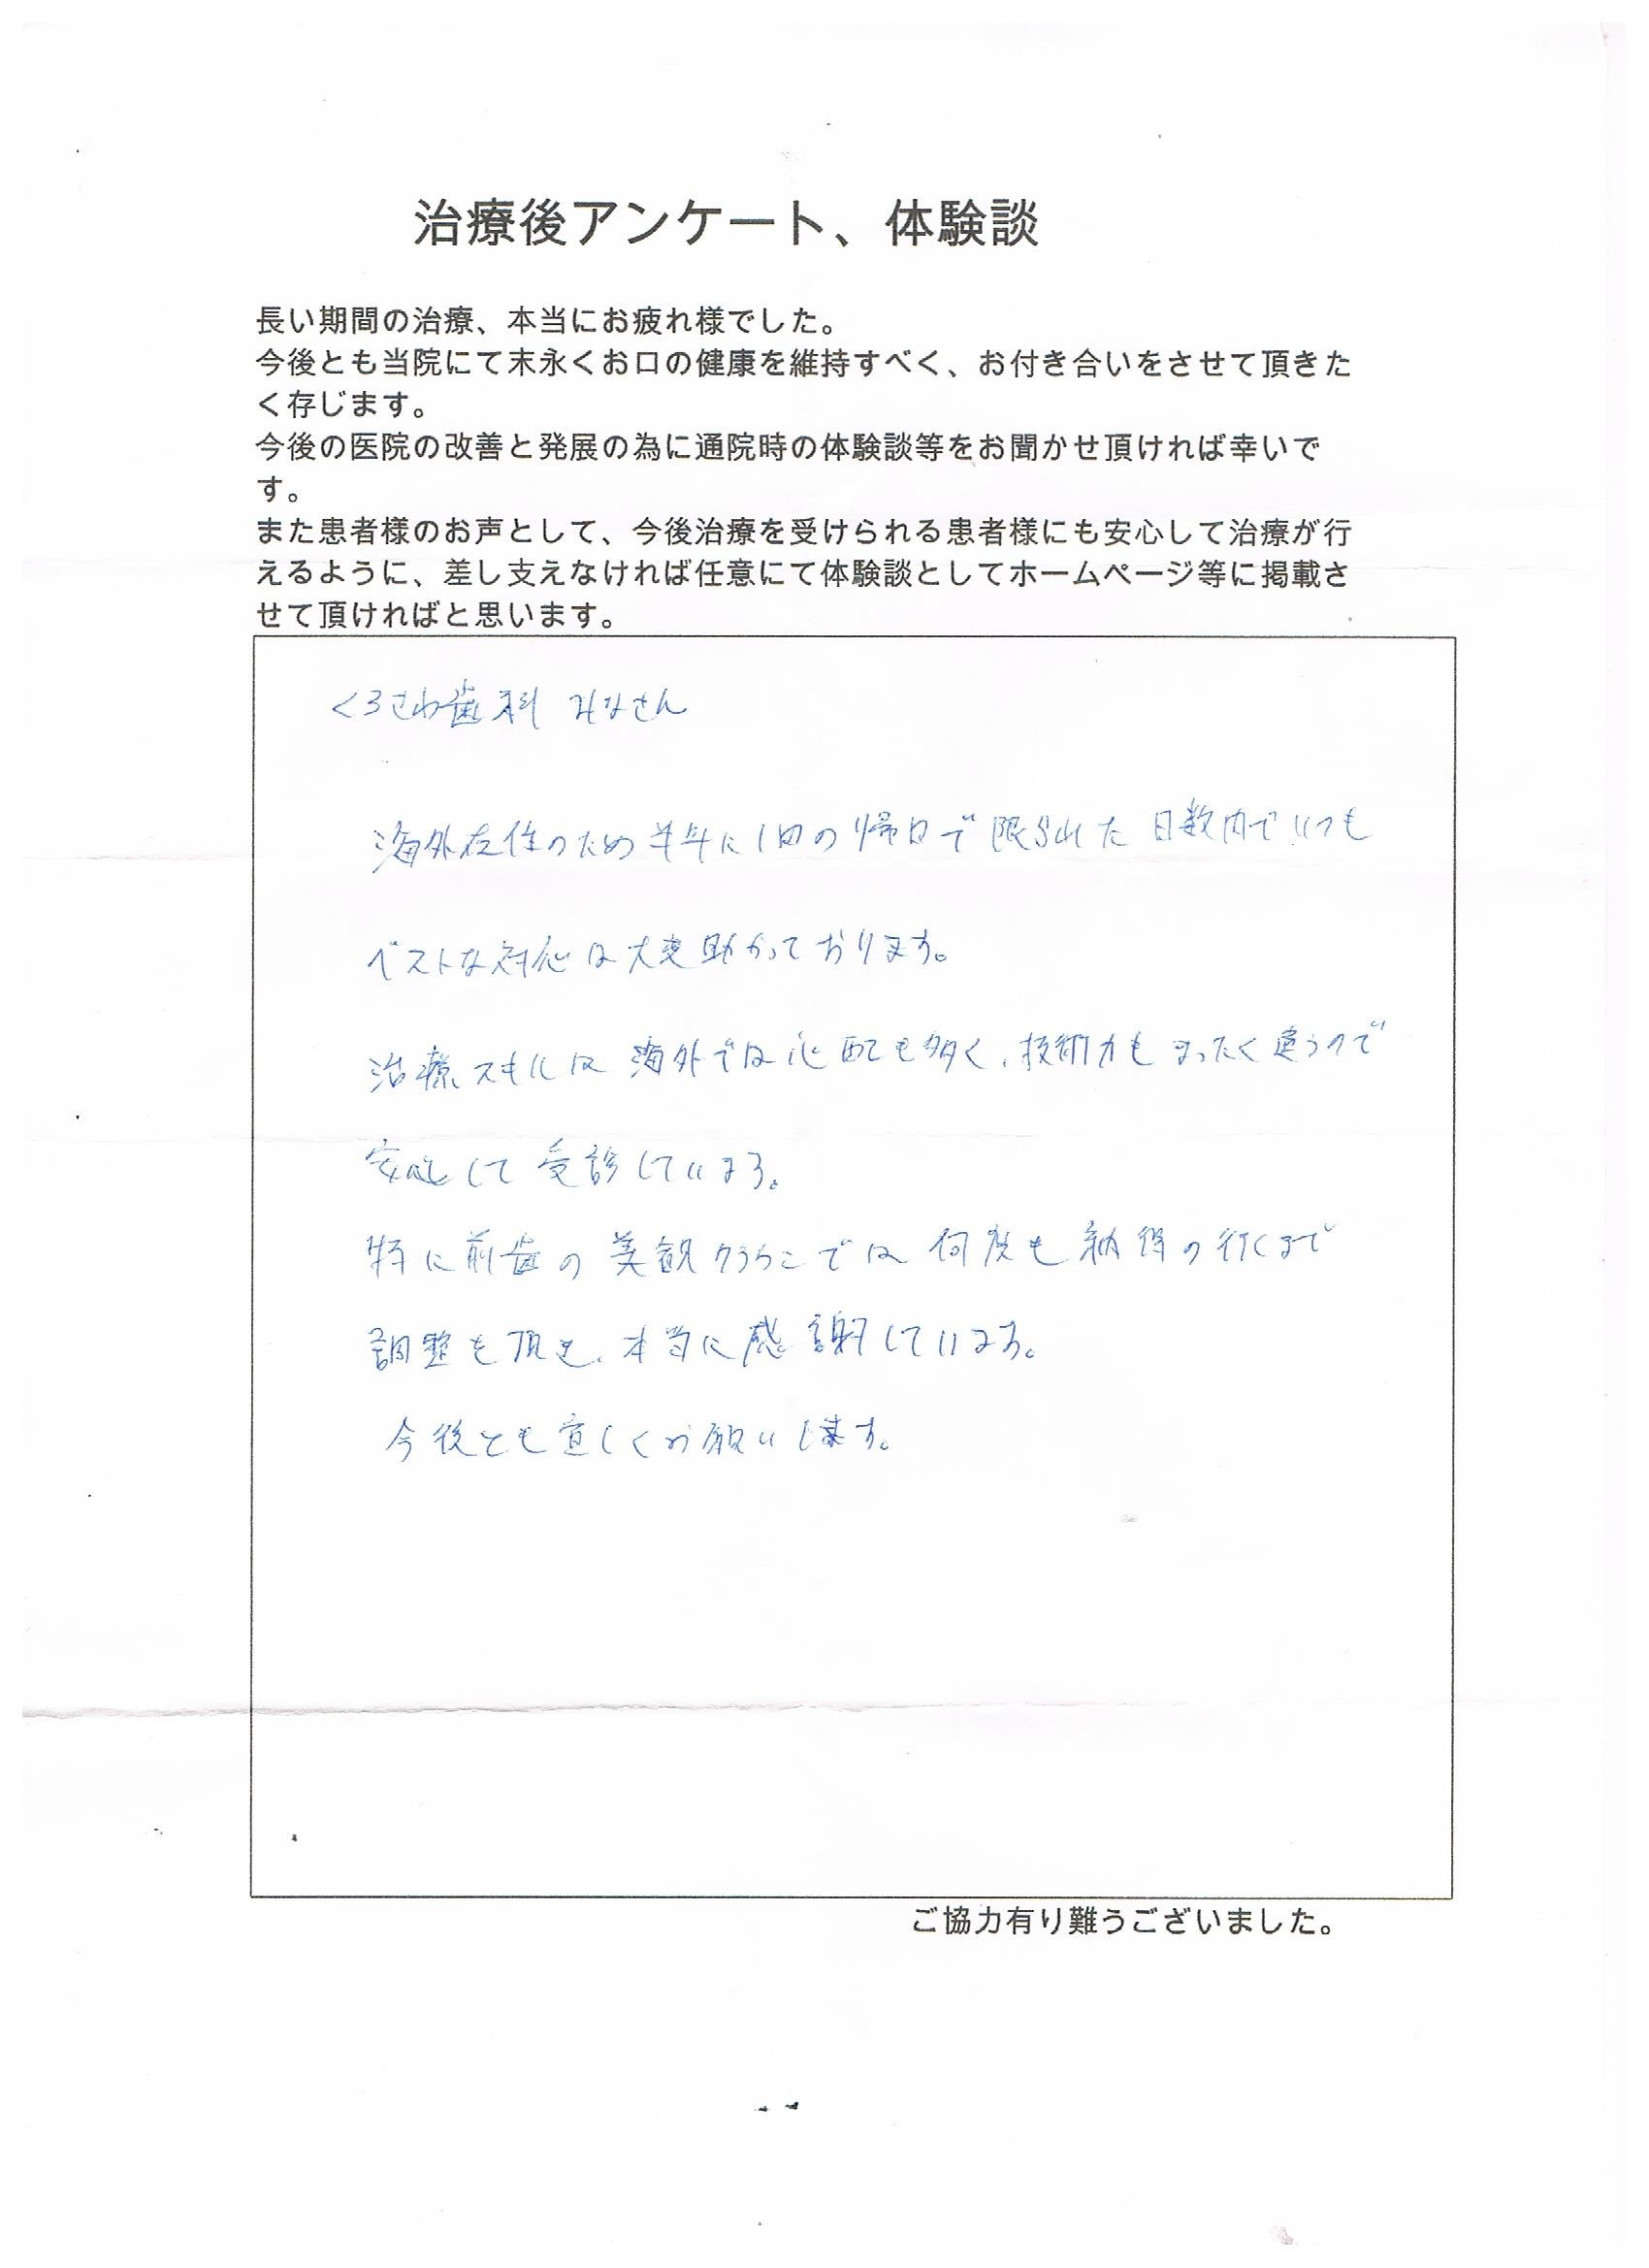 治療後アンケート、体験談
長い期間の治療、本当にお疲れ様でした。
今後とも当院にて末永くお口の健康を維持すべく、お付き合いをさせて頂きた
く存じます。
今後の医院の改善と発展の為に通院時の体験談等をお聞かせ頂ければ幸いで
す。
また患者様のお声として、今後治療を受けられる患者様にも安心して治療が行
えるように、差し支えなければ任意にて体験談としてホームページ等に掲載さ
せて頂ければと思います。
くろさわ歯科 みなさん
海外在住のため半年に1回の帰日で限られた日数内でいつも
ベストな対応は大変助かっております。
治療スキルは海外では心配も多く、技術力もまったく違うので
安心して受診しています。
特に前歯の美観クラウンでは何度も納得の行くまで
調整を頂き、本当に感謝しています。
今後とも宜しくお願いします。
ご協力有り難うございました。